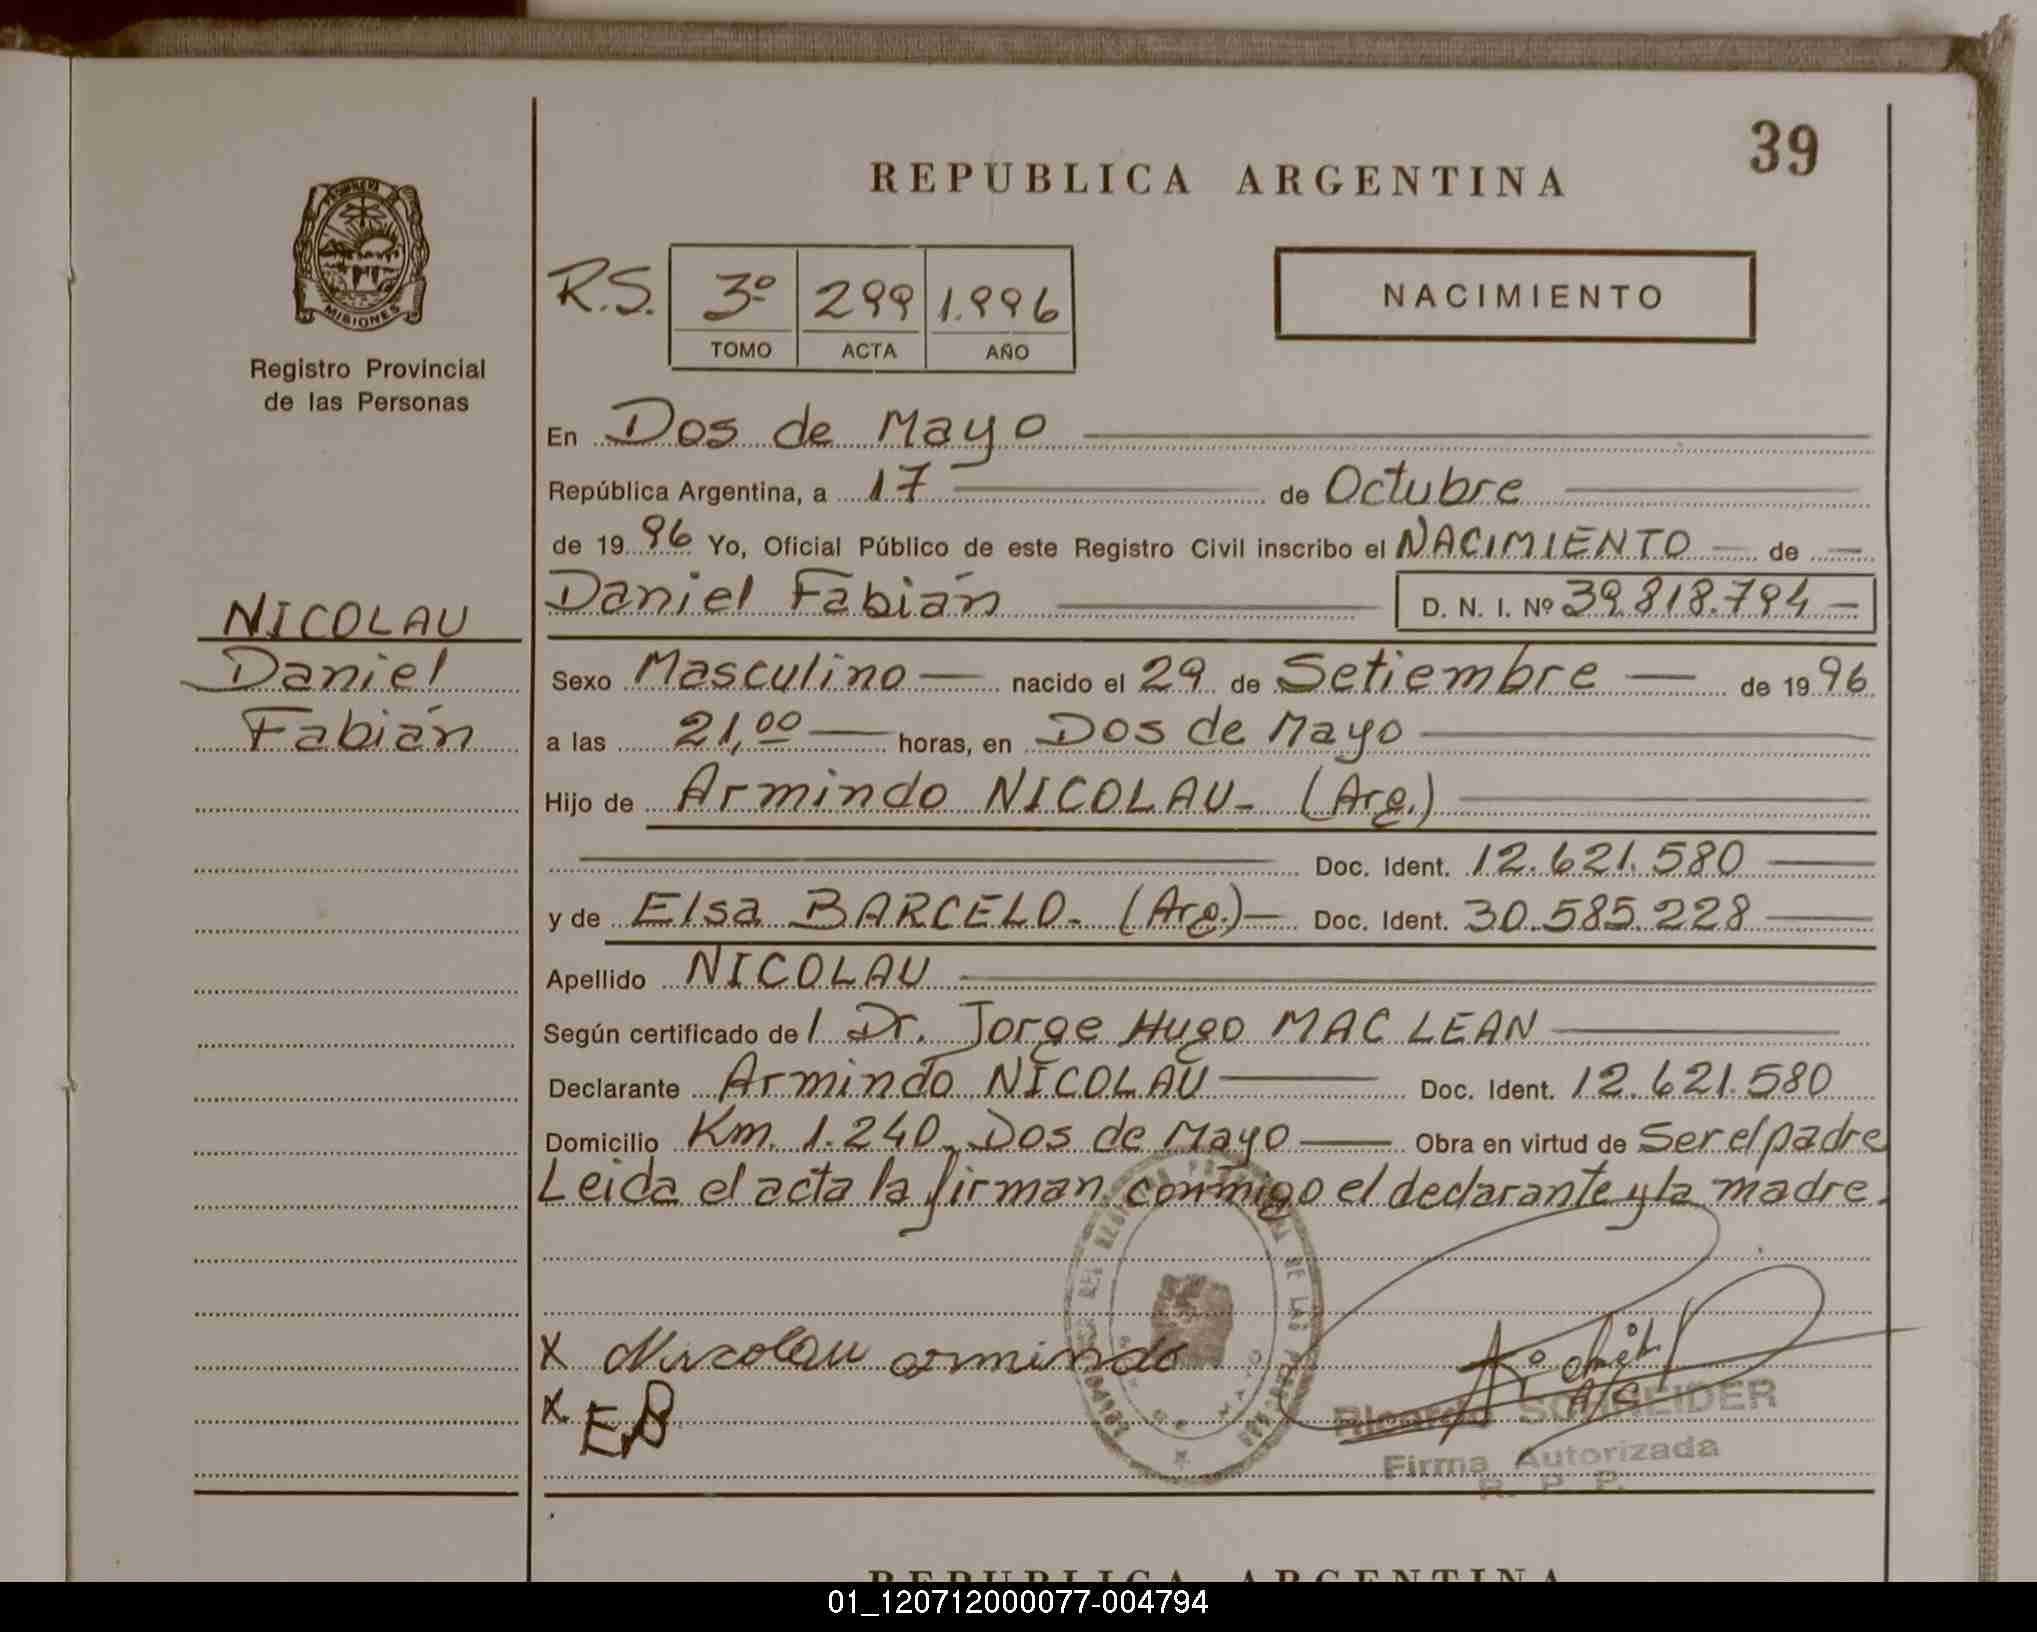 39
REPUBLICA ARGENTINA
MISIONES
Registro Provincial
de las Personas
R.S. 3º 299 1.996
TOMO ACTA AÑO
NACIMIENTO
En Dos de Mayo
República Argentina, a 17 de Octubre
de 1996 Yo, Oficial Público de este Registro Civil inscribo el NACIMIENTO de
NICOLAU
Daniel
Fabián
Daniel Fabián D. N. I. Nº 39.818.794
Sexo Masculino nacido el 29 de Setiembre de 1996
a las 21,00 horas, en Dos de Mayo
Hijo de Armindo NICOLAU- (Arg.)
Doc. Ident. 12.621.580
y de Elsa BARCELO- (Arg.) Doc. Ident. 30.585.228
Apellido NICOLAU
Según certificado del Dr. Jorge Hugo MAC LEAN
Declarante Armindo NICOLAU Doc. Ident. 12.621.580
Domicilio Km. 1.240- Dos de Mayo Obra en virtud de Ser el padre
Leida el acta la firman conmigo el declarante y la madre.
X Nicolau armindo
X. EB
Ricardo SCHNEIDER
Firma Autorizada
R. P. P.
REPUBLICA ARGENTINA
01_120712000077-004794